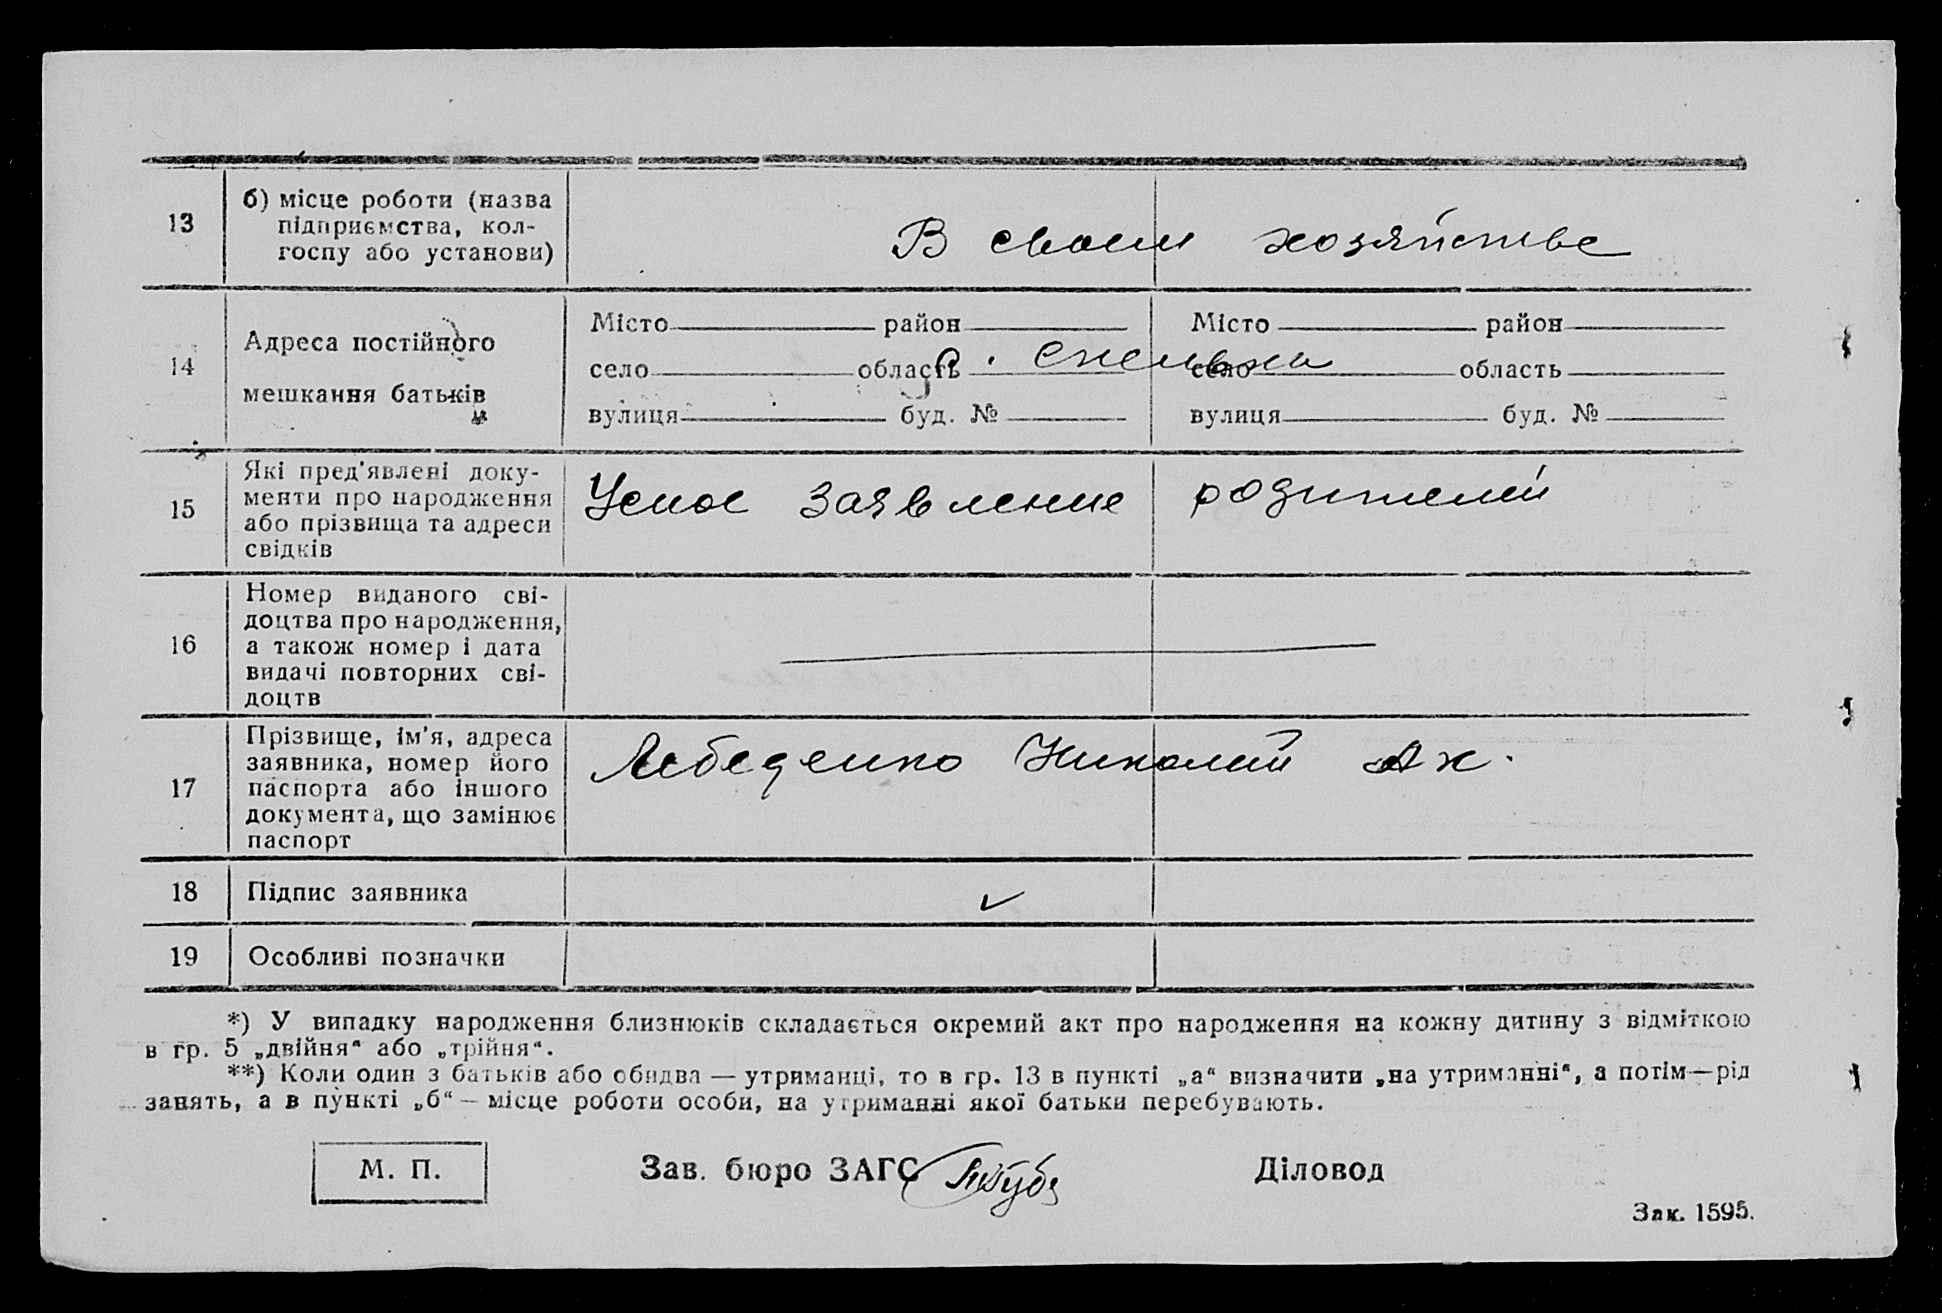 13
б) місце роботи (назва
підприємства, кол-
госпу або установи)
В своем хозяйстве
14
Адреса постійного
мешкання батьків
Місто район
село область
вулиця буд. №
Місто район
село область
вулиця буд. №
15
Які пред'явлені доку-
менти про народження
або прізвища та адреси
свідків
Усное заявление родителей
16
Номер виданого сві-
доцтва про народження,
а також номер і дата
видачі повторних сві-
доцтв
17
Прізвище, ім'я, адреса
заявника, номер його
паспорта або іншого
документа, що замінює
паспорт
Лебеденко Николай Ак.
18
Підпис заявника
19
Особливі позначки
*) У випадку народження близнюків складається окремий акт про народження на кожну дитину з відміткою
в гр. 5 „двійня“ або „трійня“.
**) Коли один з батьків або обидва — утриманці, то в гр. 13 в пункті „а“ визначити „на утриманні“, а потім—рід
занять, а в пункті „б“ — місце роботи особи, на утриманні якої батьки перебувають.
М. П.
Зав. бюро ЗАГС
Діловод
Зак. 1595.